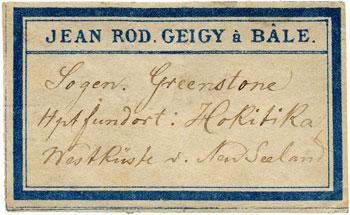 JEAN ROD. GEIGY à BÂLE.
Sogen. Greenstone
Hptfundort: Hokitika
Westküste v. New Seeland